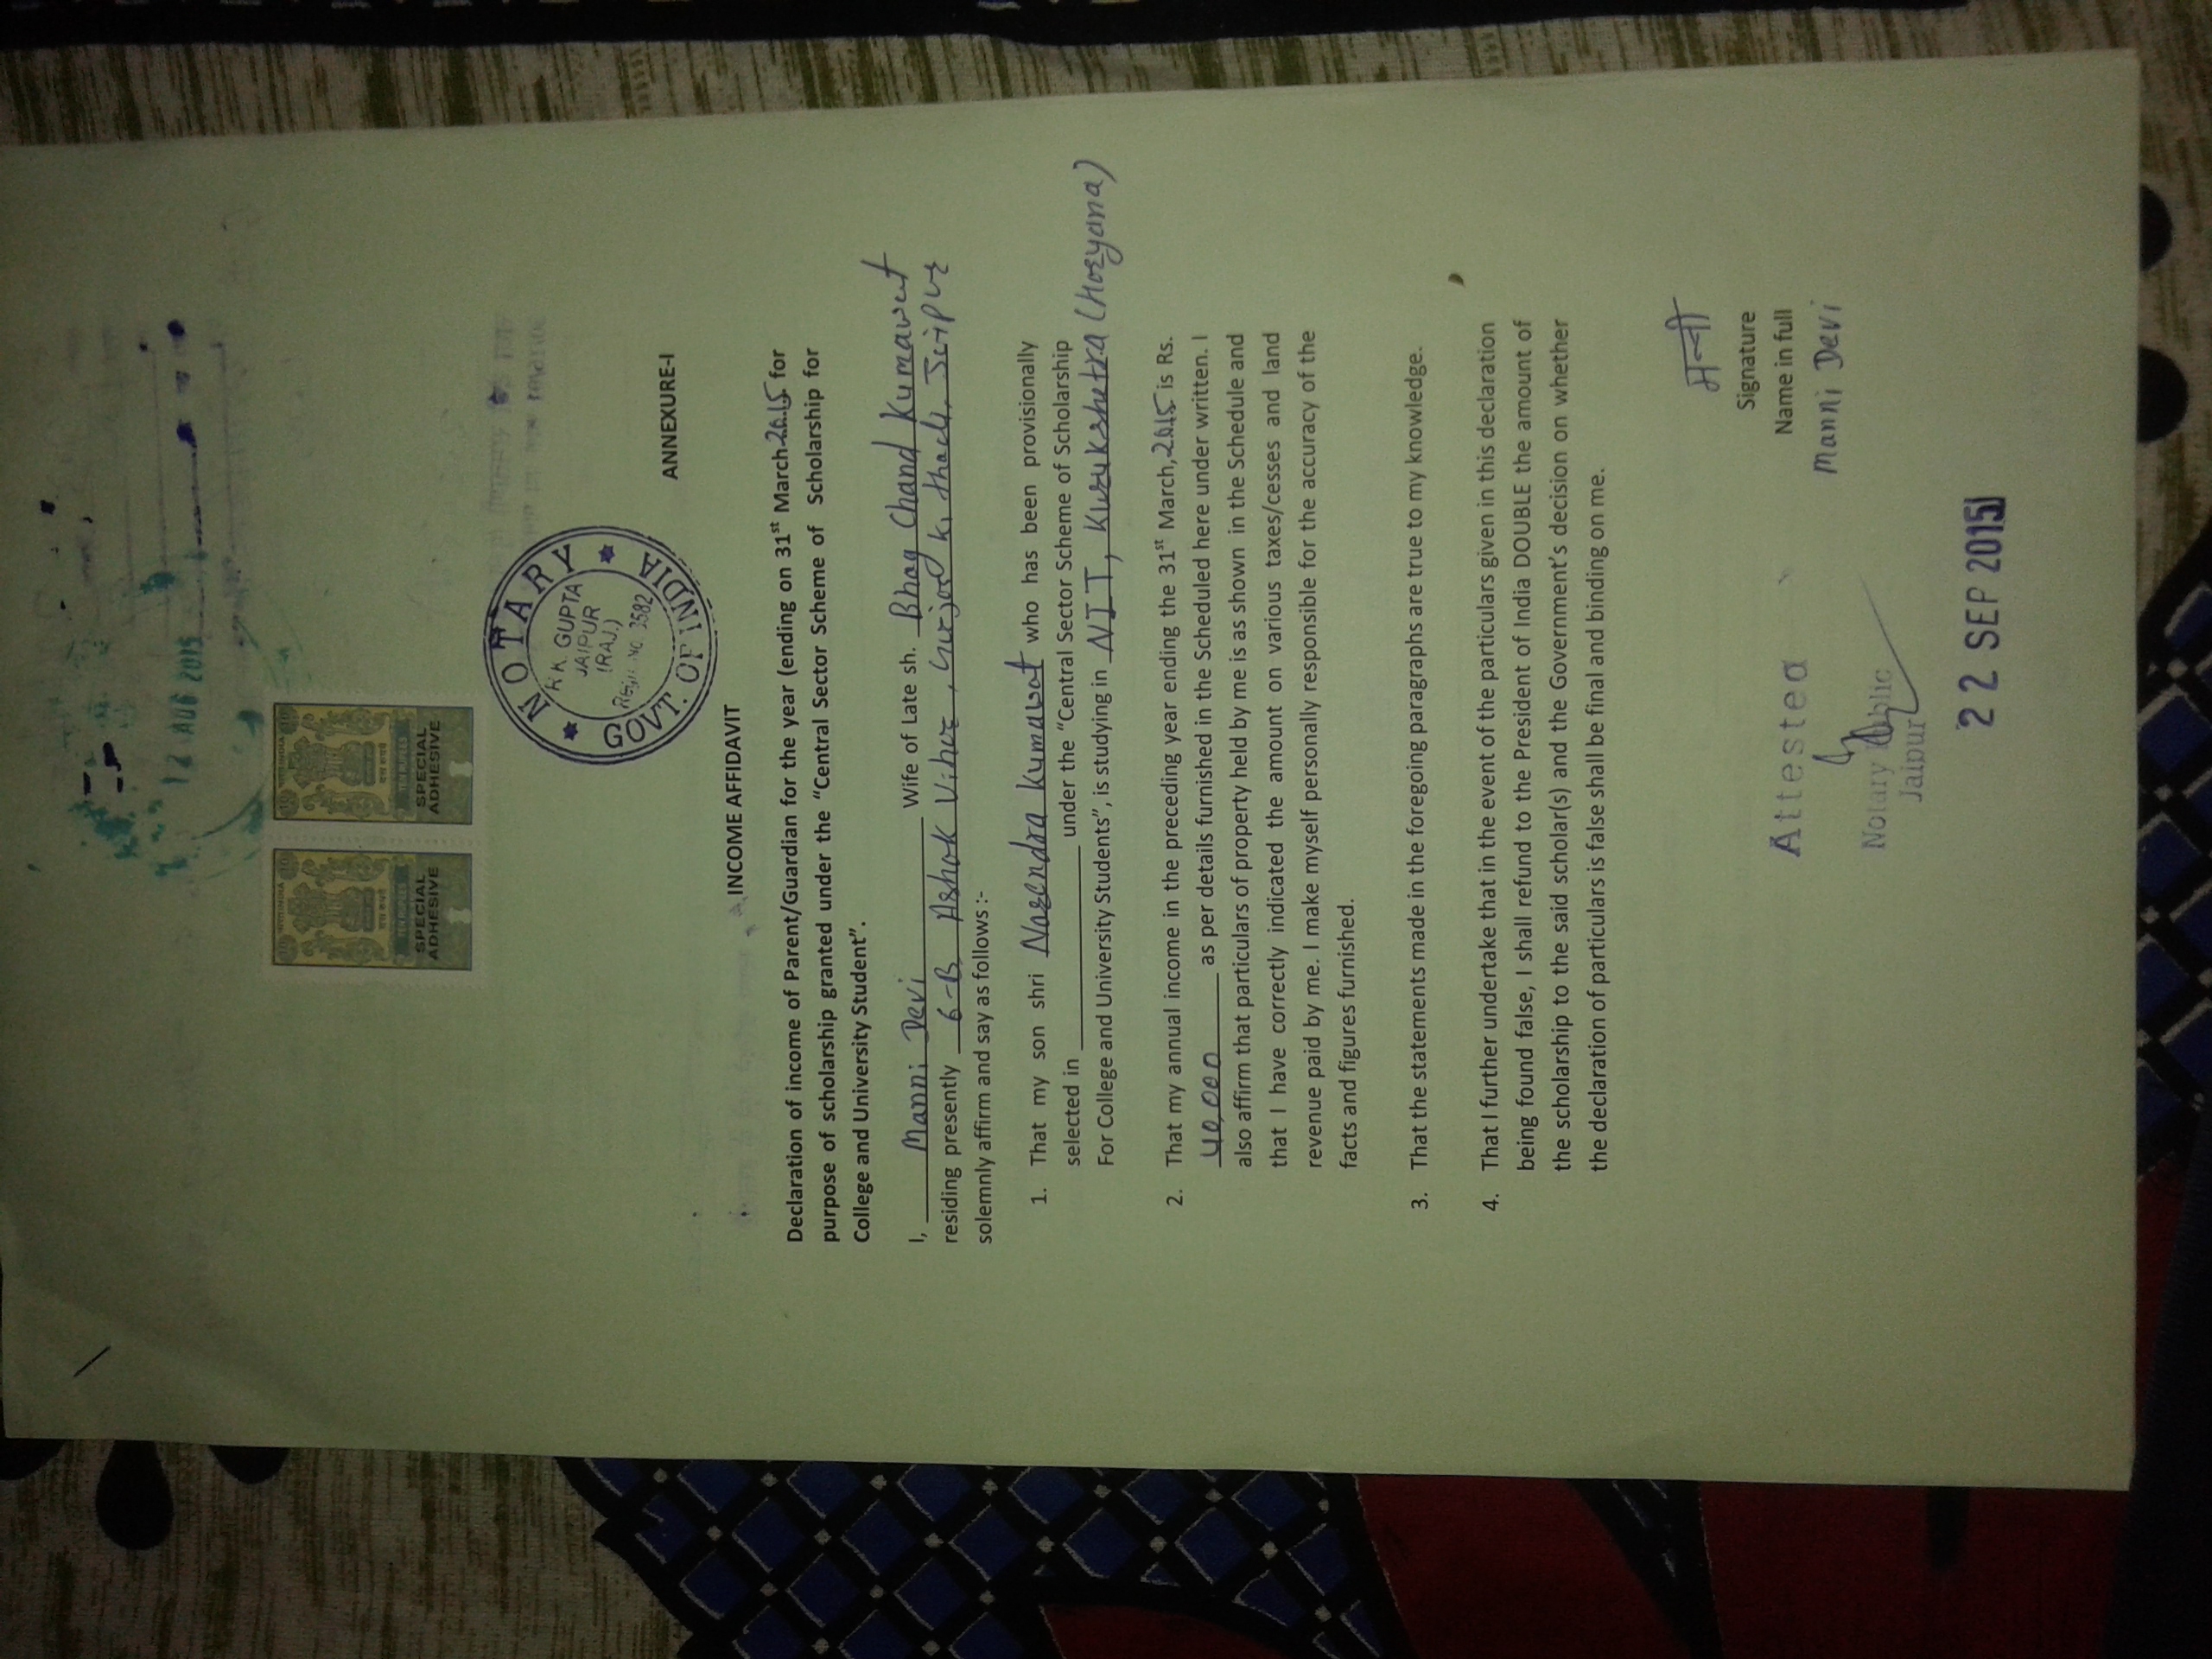 12 AUG 2015
भारत INDIA
दस रुपये
TEN RUPEES
SPECIAL
ADHESIVE
भारत INDIA
दस रुपये
TEN RUPEES
SPECIAL
ADHESIVE
NOTARY
R.K. GUPTA
JAIPUR
(RAJ.)
Regn. No. 3582
GOVT. OF INDIA
ANNEXURE-I
INCOME AFFIDAVIT
Declaration of income of Parent/Guardian for the year (ending on 31st March-2015 for
purpose of scholarship granted under the "Central Sector Scheme of Scholarship for
College and University Student".
I, Manni Devi Wife of Late sh. Bhag Chand Kumawat
residing presently 6-B Ashok Vihar, Gurjar ki thadi, Jaipur
solemnly affirm and say as follows :-
1. That my son shri Narendra Kumawat who has been provisionally
selected in under the "Central Sector Scheme of Scholarship
For College and University Students", is studying in NIT, Kurukshetra (Haryana)
2. That my annual income in the preceding year ending the 31st March, 2015 is Rs.
40,000 as per details furnished in the Scheduled here under written. I
also affirm that particulars of property held by me is as shown in the Schedule and
that I have correctly indicated the amount on various taxes/cesses and land
revenue paid by me. I make myself personally responsible for the accuracy of the
facts and figures furnished.
3. That the statements made in the foregoing paragraphs are true to my knowledge.
4. That I further undertake that in the event of the particulars given in this declaration
being found false, I shall refund to the President of India DOUBLE the amount of
the scholarship to the said scholar(s) and the Government's decision on whether
the declaration of particulars is false shall be final and binding on me.
मन्नी
Signature
Name in full
Manni Devi
Attested
Notary Public
Jaipur
22 SEP 2015